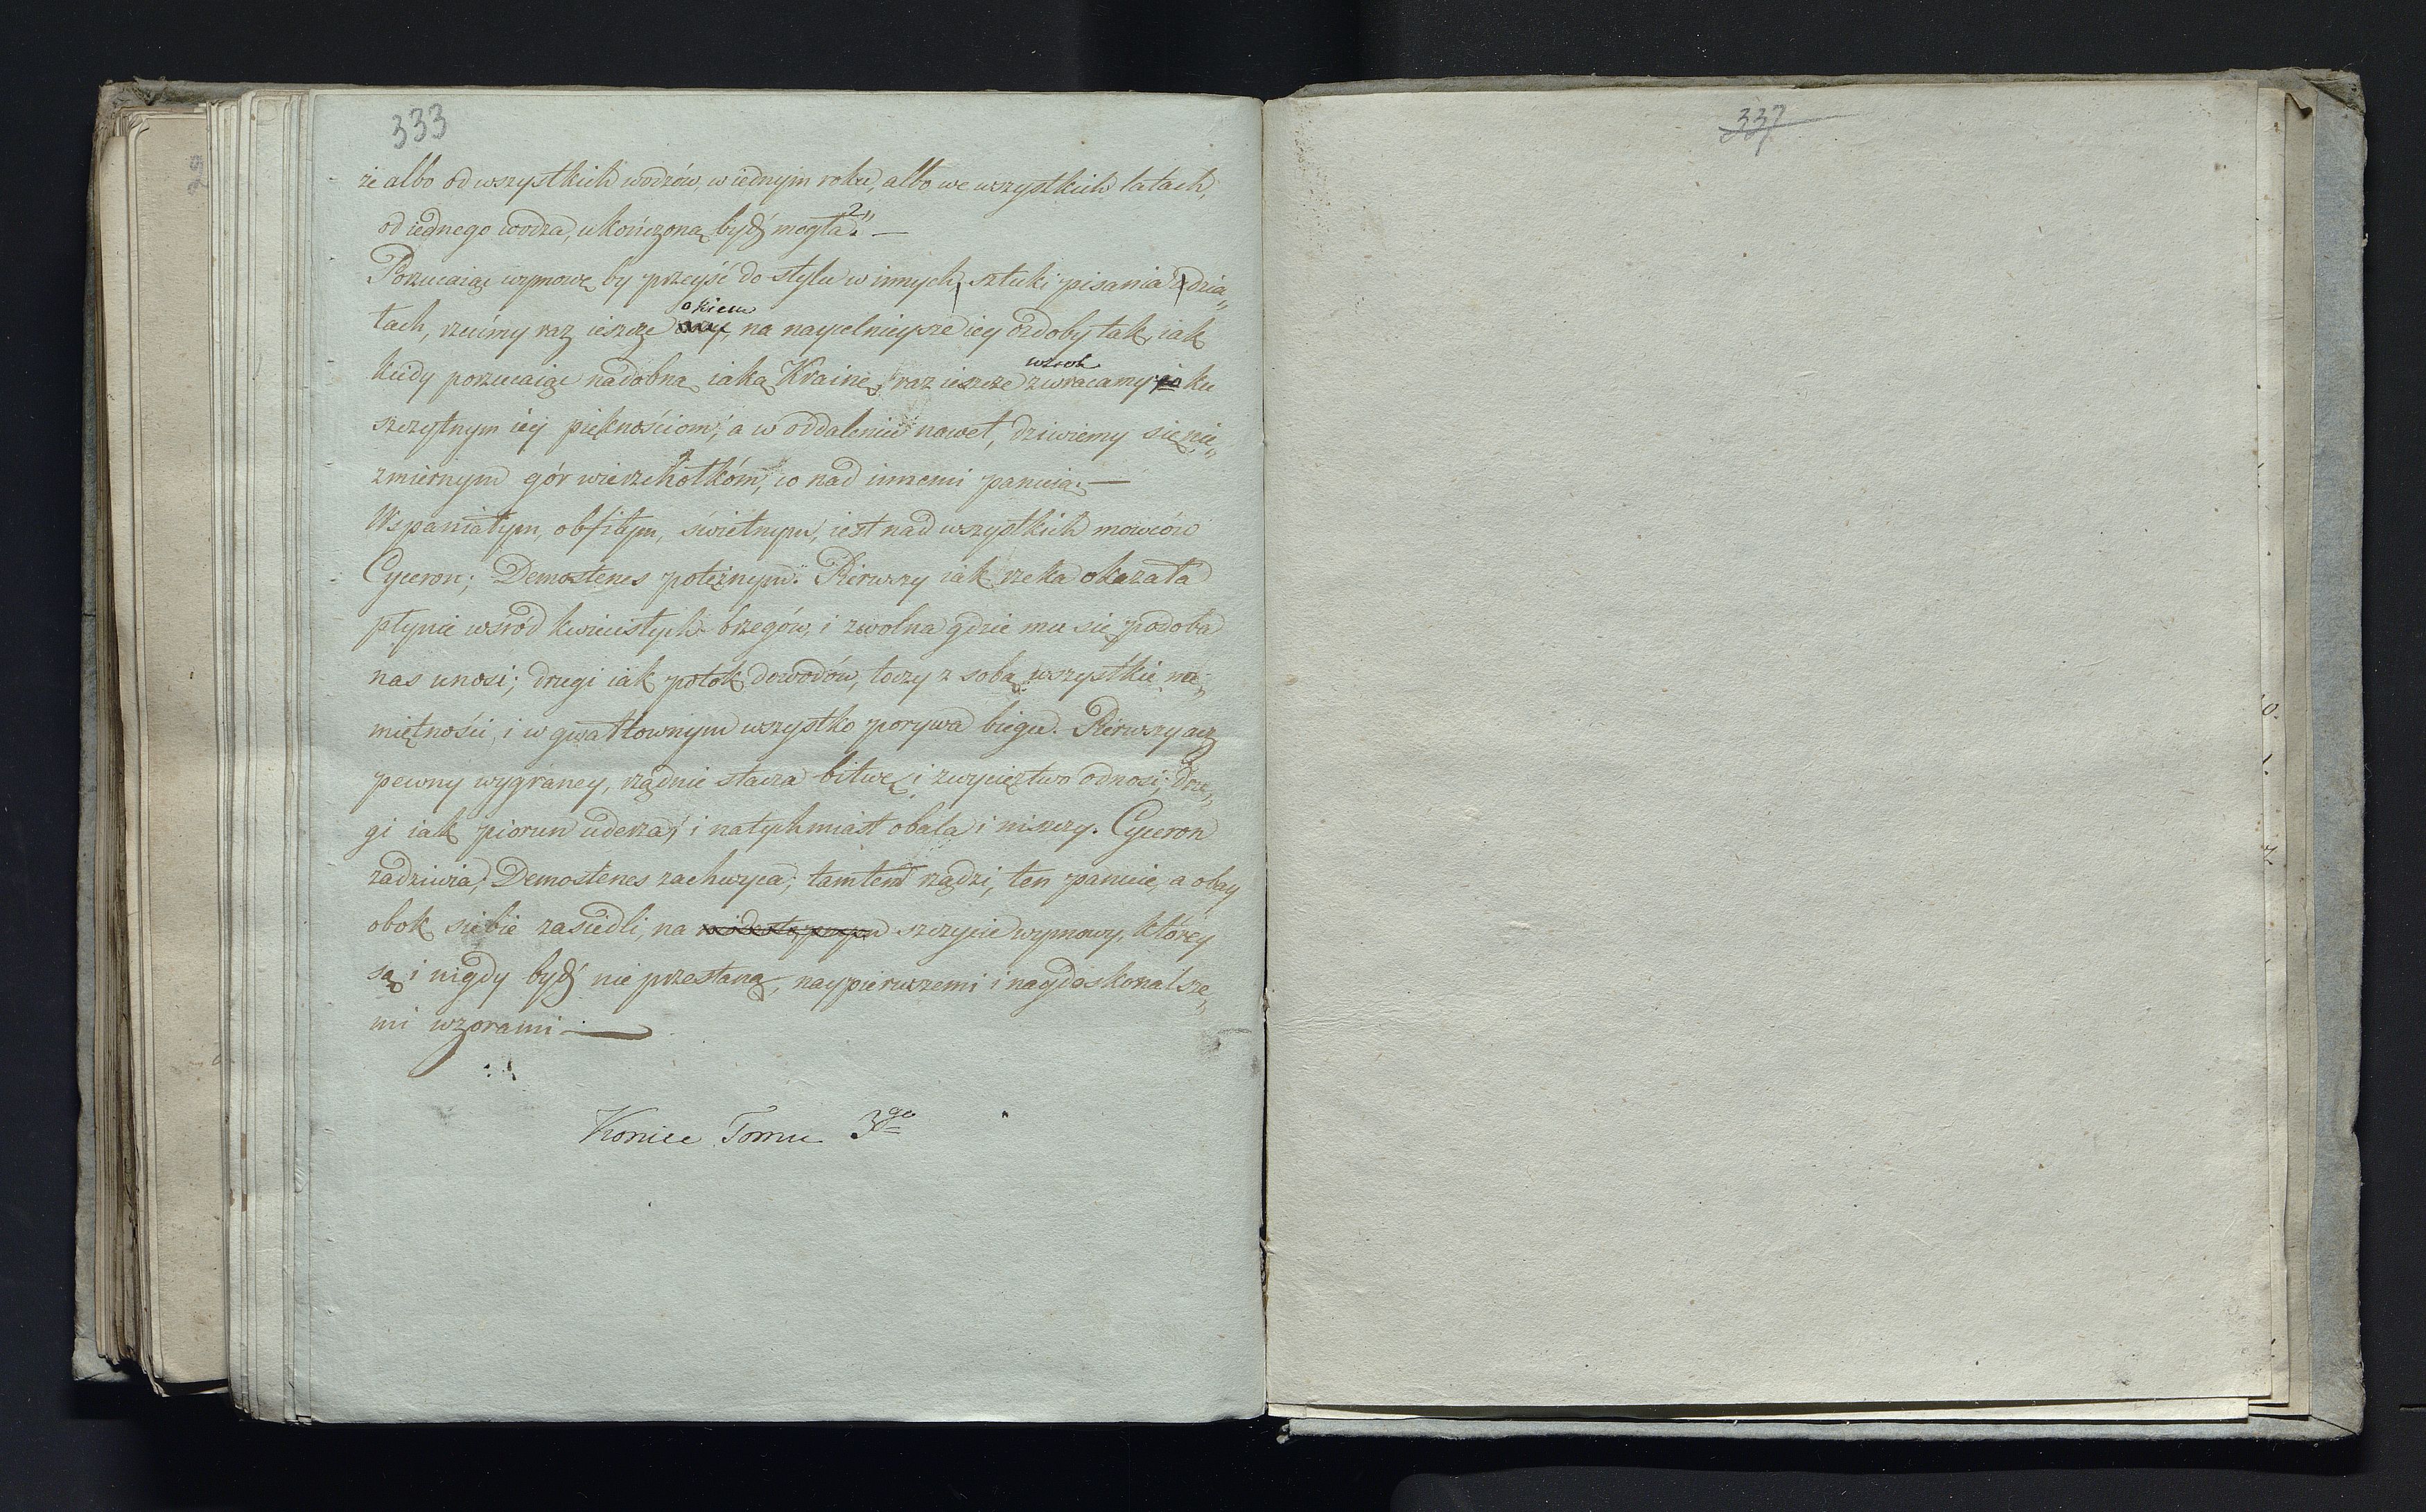 333
że albo od wszystkich wodzów, w iednym roku, albo we wszystkich latach,
od iednego wodza, ukończoną bydź mogła." 2.—
Porzucaiąc wymowę by przeyść do stylu w innych, sztuki pisania dzia„
łach, rzućmy raz ieszcze okiem na naycelnieysze iey ozdoby tak, iak
kiedy porzucaiąc nadobną iaką Krainę, raz ieszcze wzrok zwracamy ku
szczytnym iey pięknościom; a w oddaleniu nawet, dziwiemy się nie„
zmiernym gór wierzchołkóm, co nad innemi panuią.—
Wspaniałym, obfitym, świetnym, iest nad wszystkich mowców
Cyceron; Demostenes potężnym. Pierwszy iak rzeka okazała
płynie wsród kwiecistych brzegów, i zwolna gdzie mu się podoba
nas unosi; drugi iak potok dowodów, toczy z sobą wszystkie na„
miętności, i w gwałtownym wszystko porywa biegu. Pierwszy acz
pewny wygraney, rządnie stacza bitwę i zwycięztwo odnosi; dru„
gi iak piorun uderza, i natychmiast obala i niszczy. Cyceron
zadziwia, Demostenes zachwyca; tamten rządzi, ten panuie, a obay
obok siebie zasiedli, na szczycie wymowy, którey
są i nigdy bydź nie przestaną, naypierwszemi i naydoskonalsze„
mi wzorami.—
Koniec Tomu 3go
337